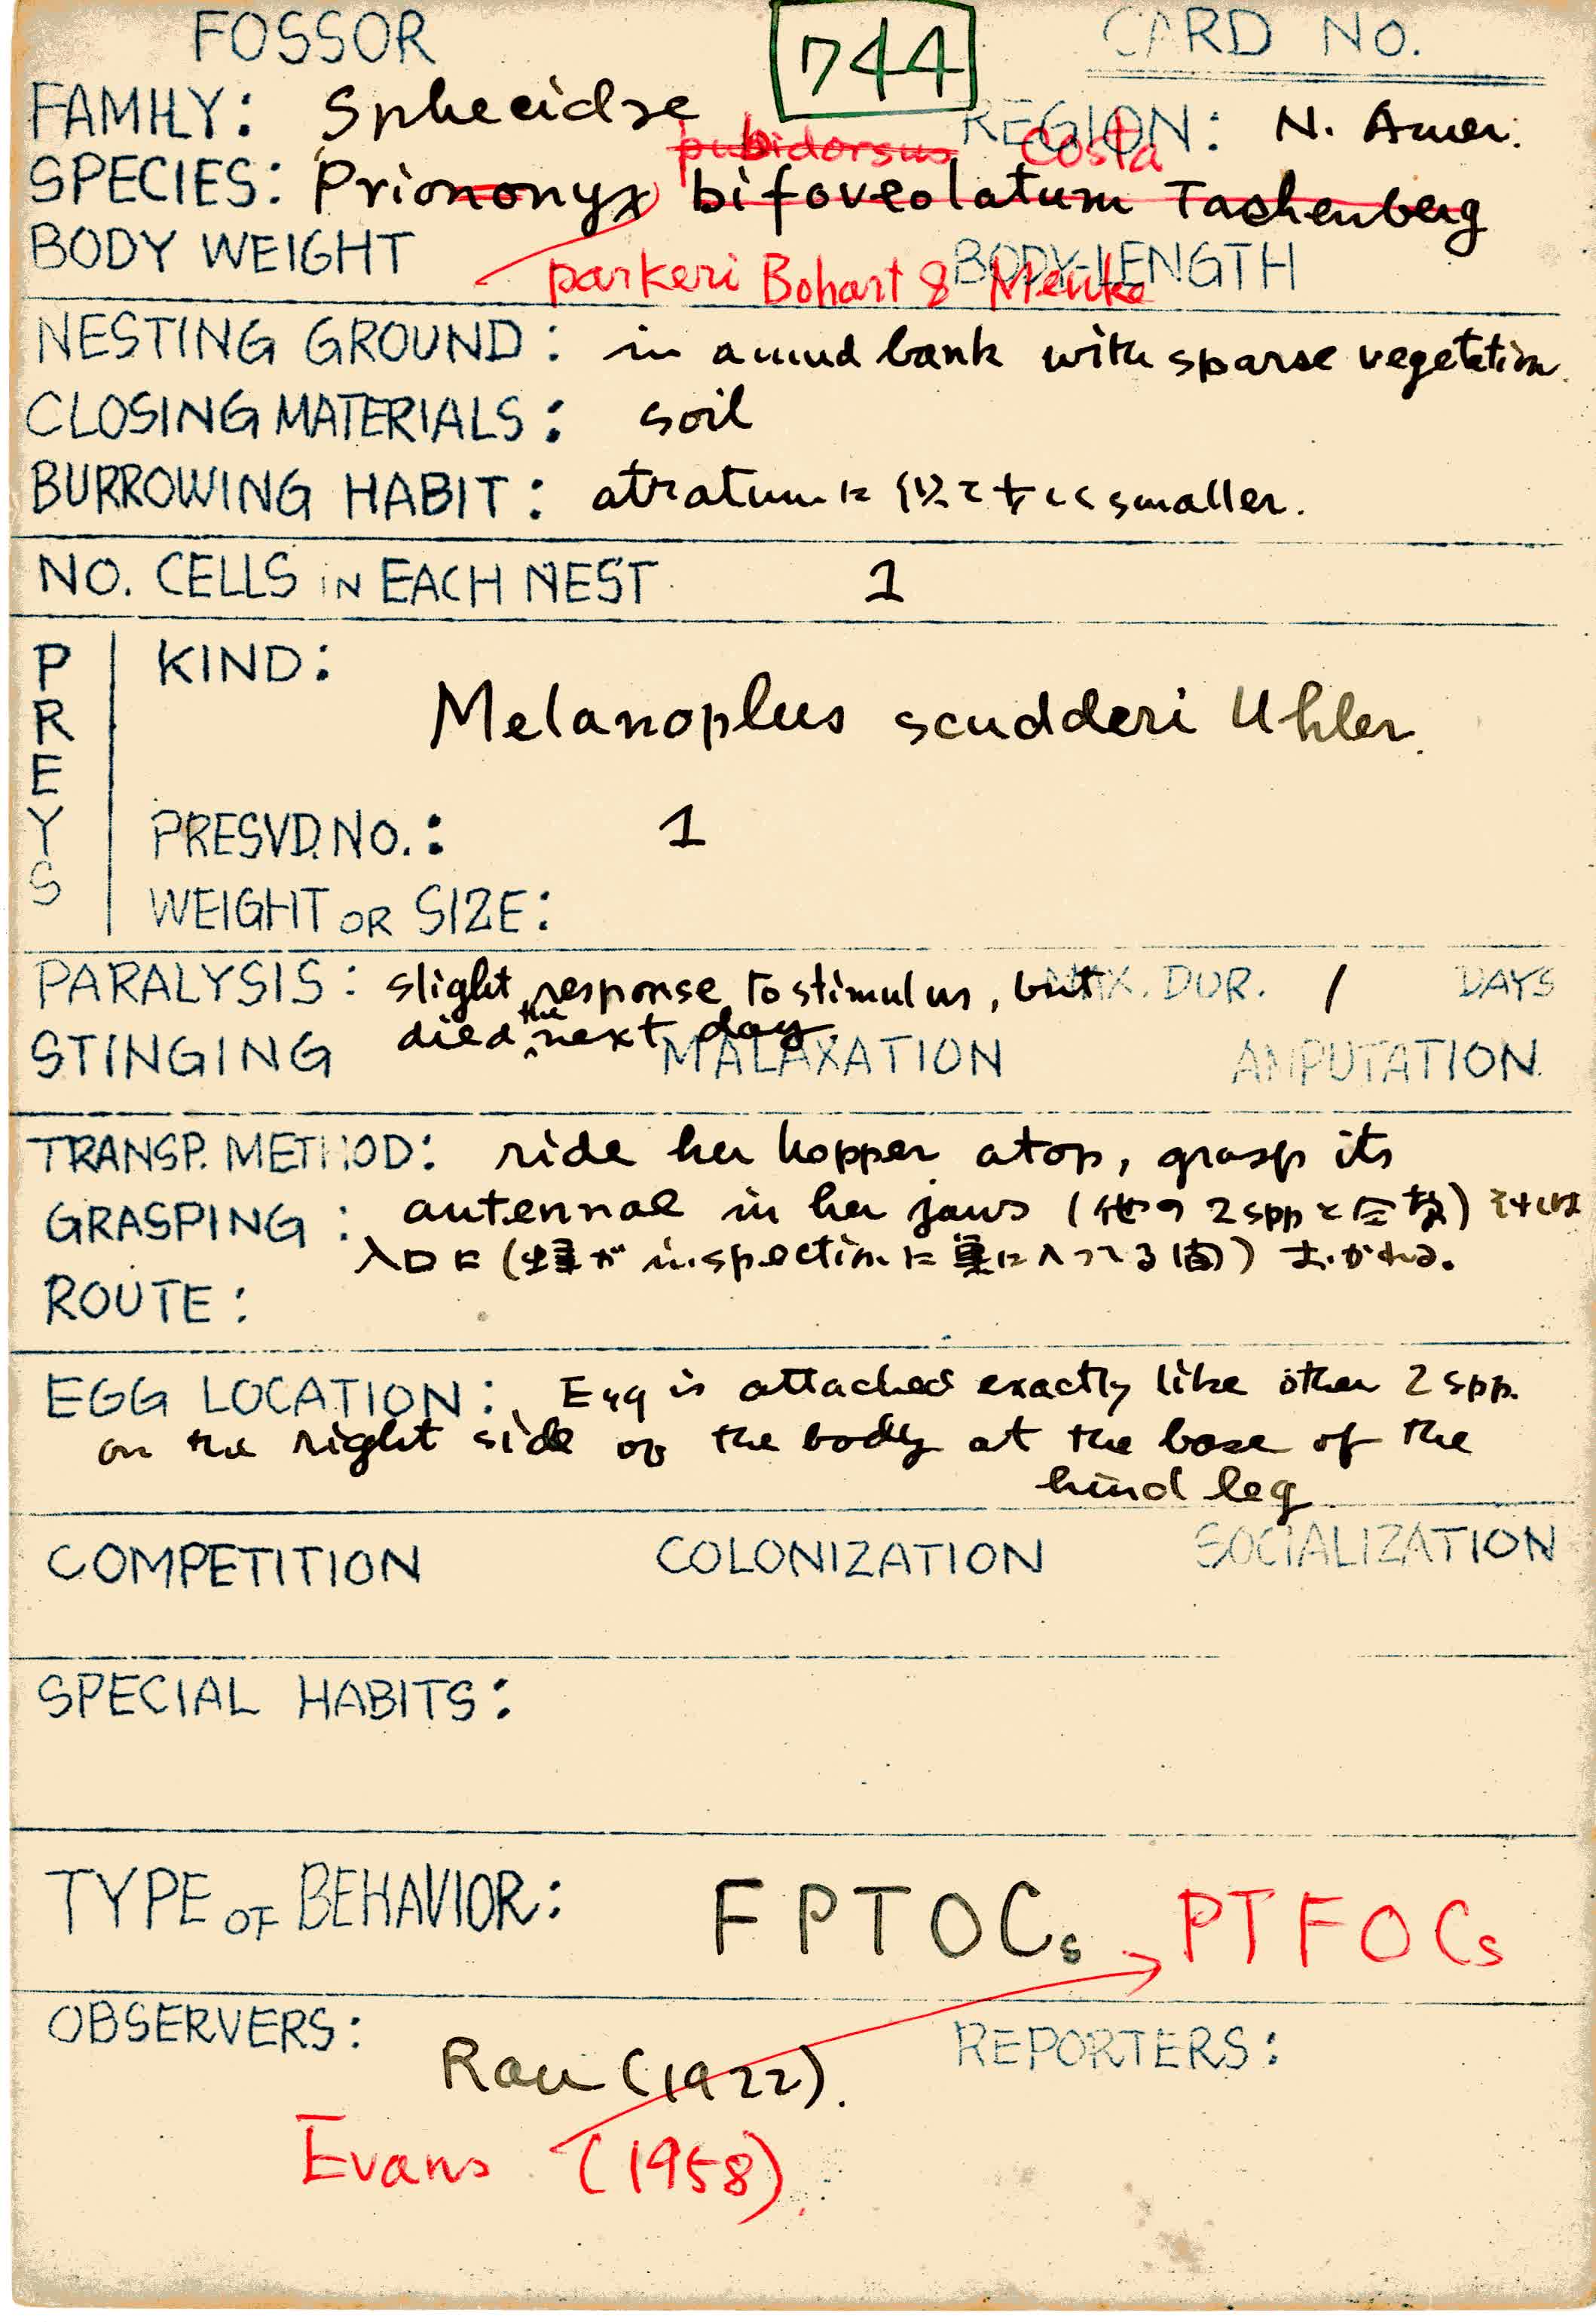 FOSSOR 744 CARD NO.
FAMILY: Sphecidae REGION: N. Amer.
pubidorsus Costa
SPECIES: Priononyx bifoveolatum Taschenberg
BODY WEIGHT BODY-LENGTH
parkeri Bohart & Menke
NESTING GROUND: in a mud bank with sparse vegetation.
CLOSING MATERIALS: soil
BURROWING HABIT: atratumに似て少しく smaller.
NO. CELLS IN EACH NEST 1
PREYS
KIND:
Melanoplus scudderi Uhler.
PRESVD. NO.: 1
WEIGHT OR SIZE:
PARALYSIS: slight response to stimulus, but MAX. DUR. 1 DAYS
died the next day.
STINGING MALAXATION AMPUTATION
TRANSP. METHOD: ride her hopper atop, grasp its
GRASPING: antennae in her jaws (他の2sppと同様)
入口に(蜂が inspection に巣に入ってる間) おかれる。
ROUTE:
EGG LOCATION: Egg is attached exactly like other 2 spp.
on the right side of the body at the base of the
hind leg
COMPETITION COLONIZATION SOCIALIZATION
SPECIAL HABITS:
TYPE OF BEHAVIOR: FPTOCs PTFOCs
OBSERVERS: REPORTERS:
Rau (1922).
Evans (1958).